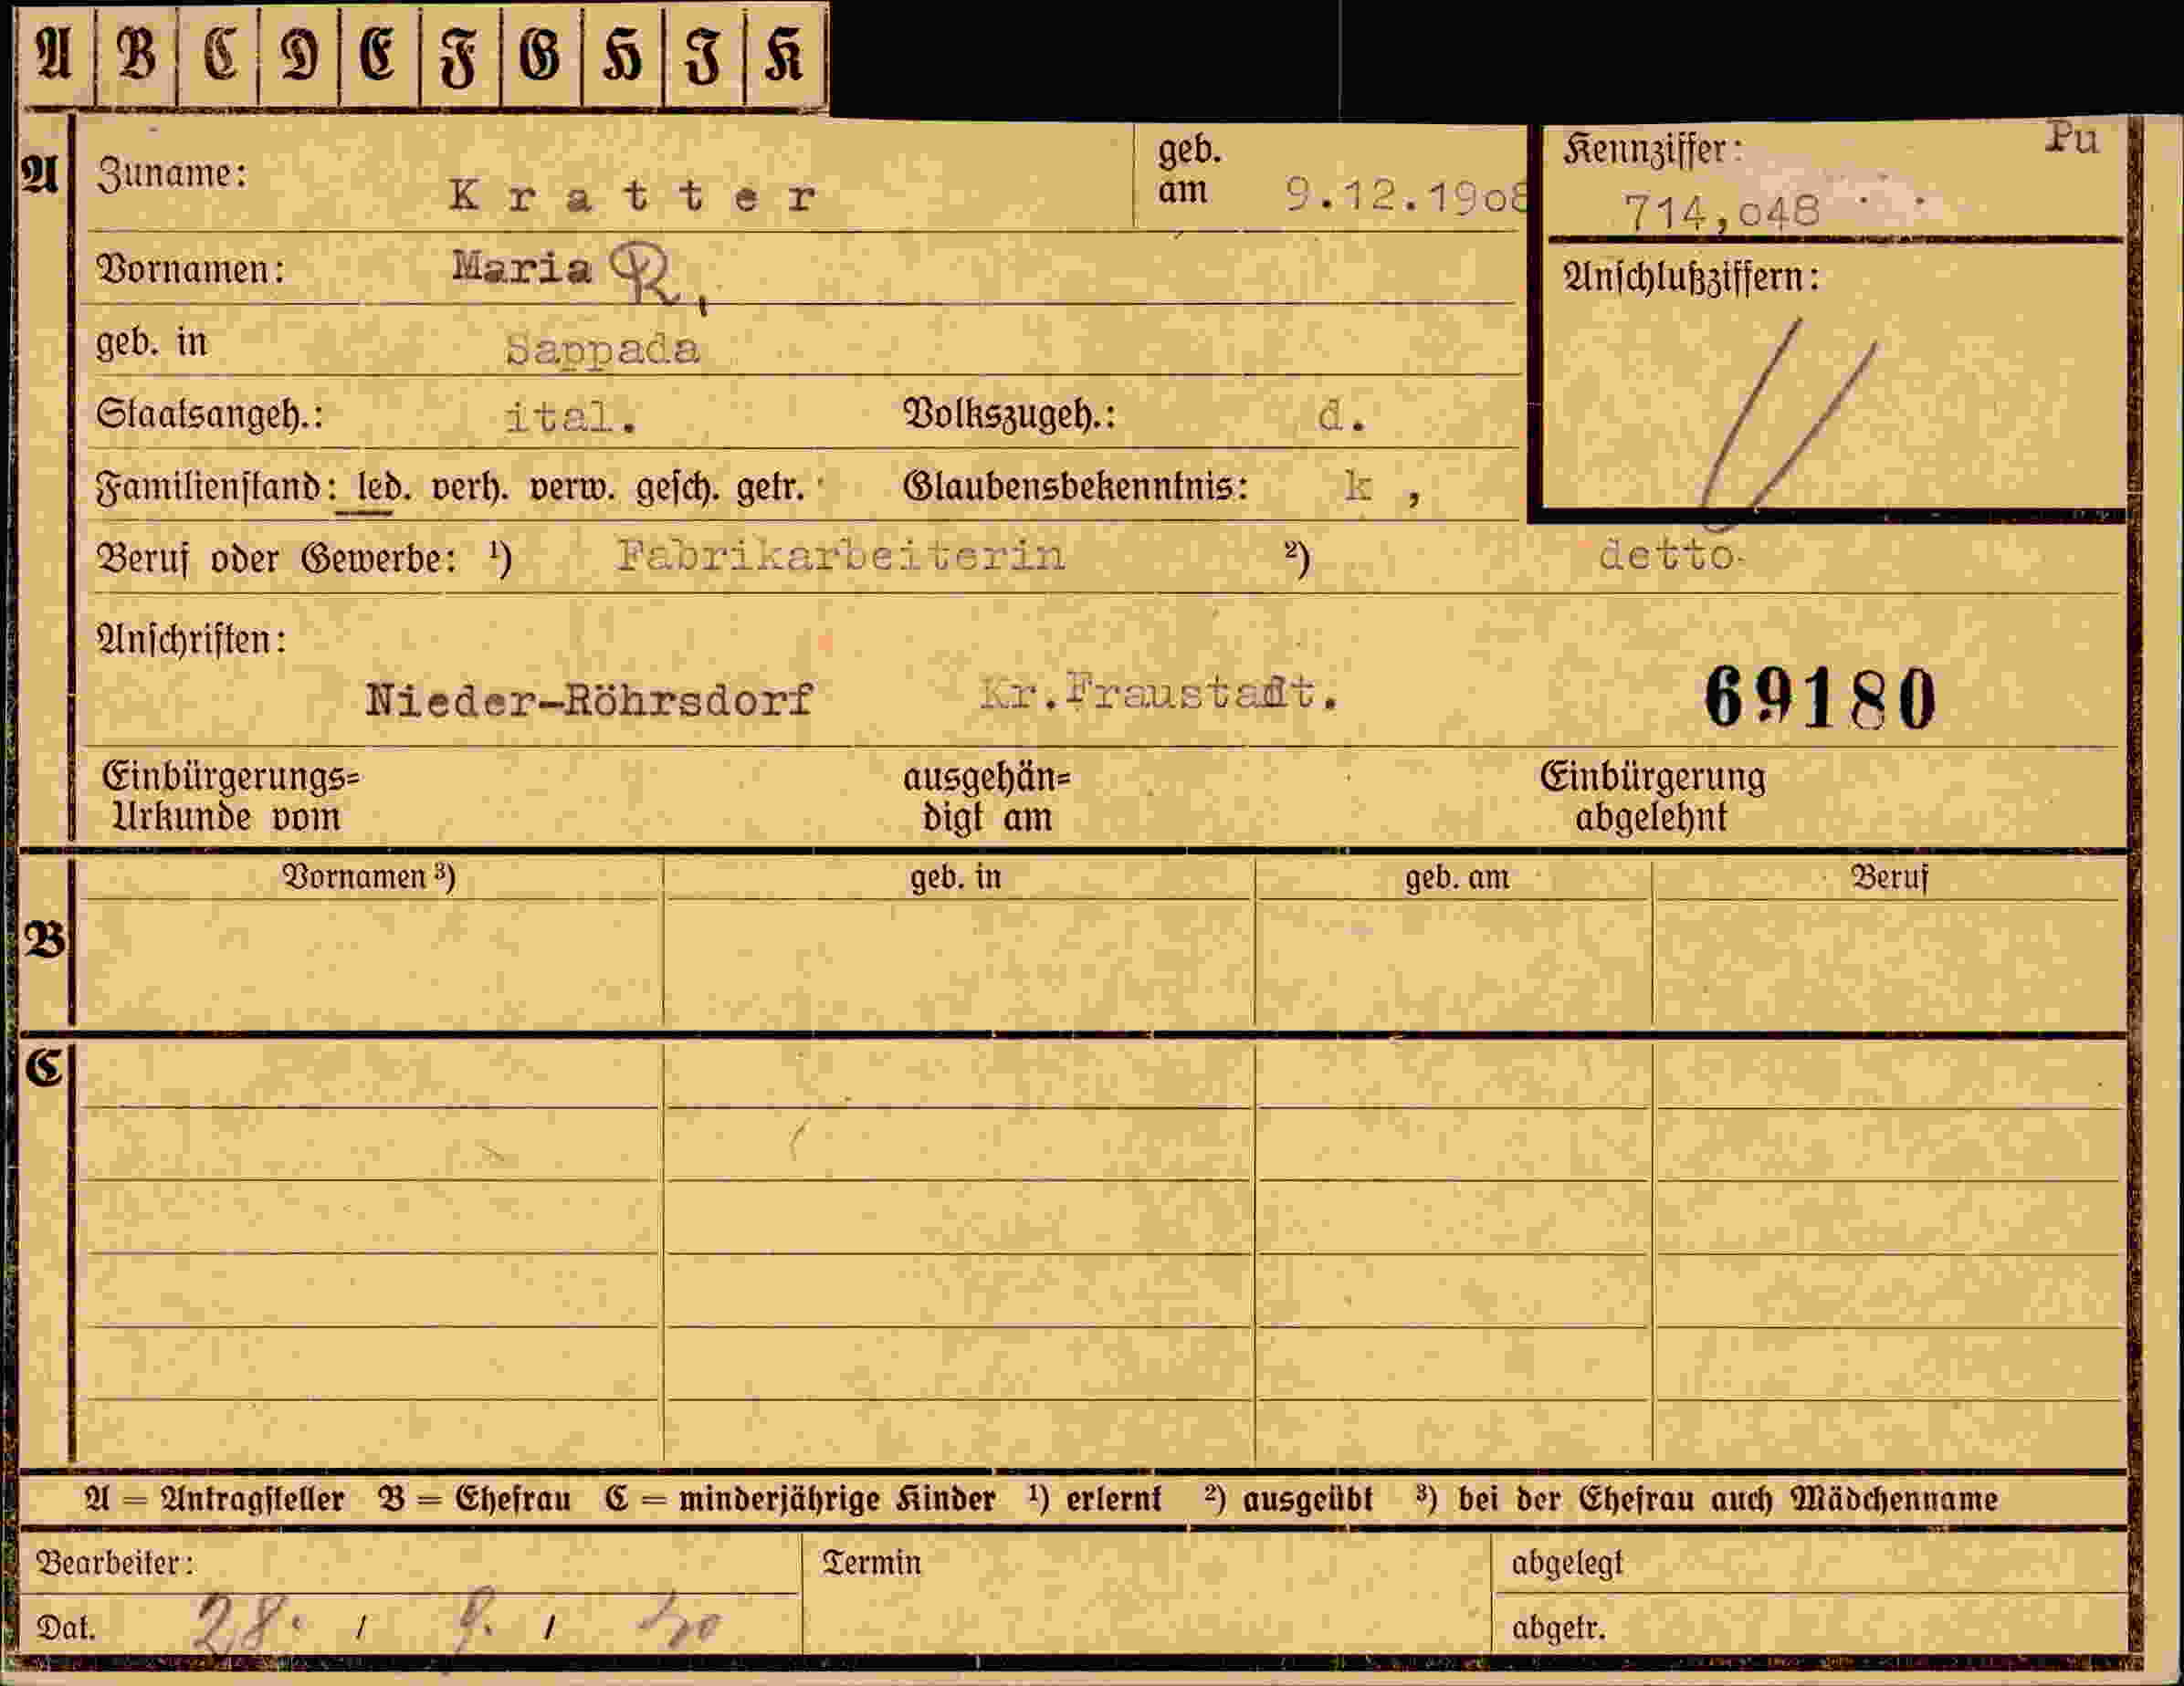 A B C D E F G H I K
A Zuname: Kratter geb. am 9.12.1908 Kennziffer: Pu
714,048
Vornamen: Maria R,
Anschlußziffern:
geb. in Sappada
Staatsangeh.: ital. Volkszugeh.: d.
Familienstand: led. verh. verw. gesch. getr. Glaubensbekenntnis: k ,
Beruf oder Gewerbe: ¹) Fabrikarbeiterin ²) detto.
Anschriften:
Nieder-Röhrsdorf Kr.Fraustadt. 69180
Einbürgerungs= ausgehän= Einbürgerung
Urkunde vom digt am abgelehnt
Vornamen ³) geb. in geb. am Beruf
B
C
A = Antragsteller B = Ehefrau C = minderjährige Kinder ¹) erlernt ²) ausgeübt ³) bei der Ehefrau auch Mädchenname
Bearbeiter: Termin abgelegt
Dat. 28. / 9. / 40 abgetr.